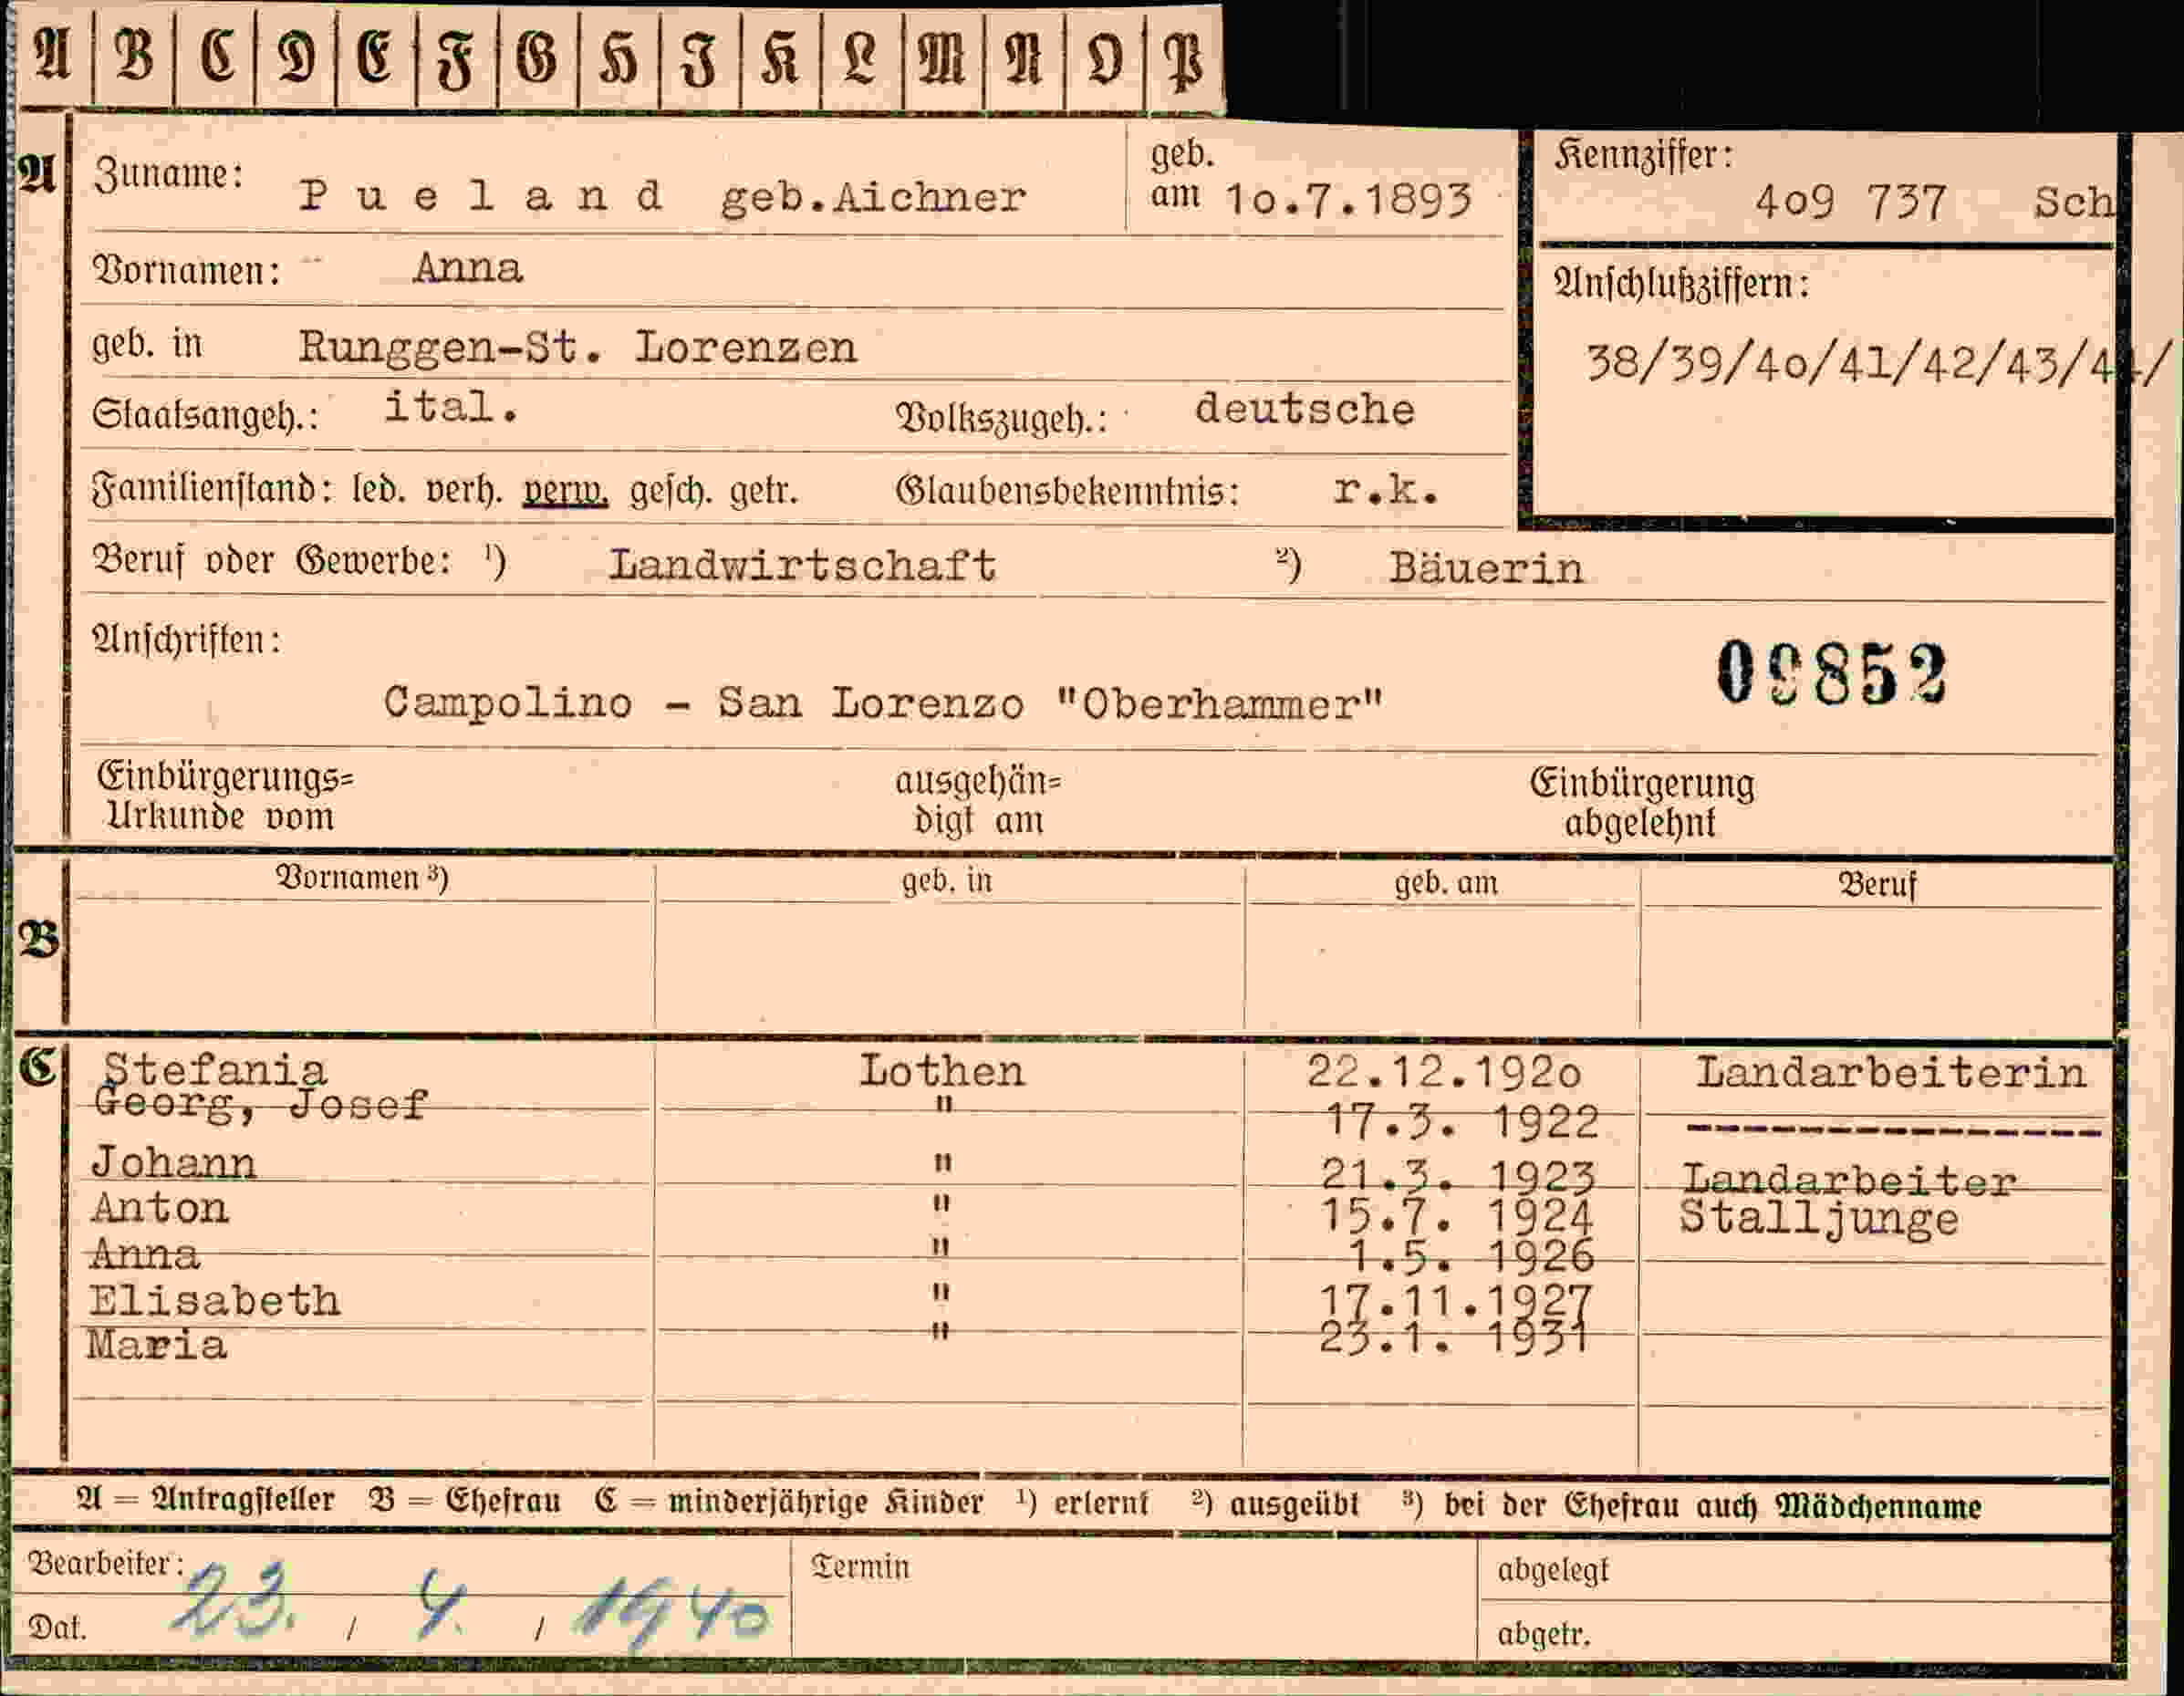 A B C D E F G H I K L M N O P
A Zuname: Pueland geb.Aichner geb. am 10.7.1893 Kennziffer: 409 737 Sch
Vornamen: Anna Anschlußziffern:
geb. in Runggen-St. Lorenzen 38/39/40/41/42/43/44/
Staatsangeh.: ital. Volkszugeh.: deutsche
Familienstand: led. verh. verw. gesch. getr. Glaubensbekenntnis: r.k.
Beruf oder Gewerbe: 1) Landwirtschaft 2) Bäuerin
Anschriften: 09852
Campolino - San Lorenzo "Oberhammer"
Einbürgerungs= ausgehän= Einbürgerung
Urkunde vom digt am abgelehnt
Vornamen 3) geb. in geb. am Beruf
B
C Stefania Lothen 22.12.1920 Landarbeiterin
Georg, Josef " 17.3. 1922 ---------------
Johann " 21.3. 1923 Landarbeiter
Anton " 15.7. 1924 Stalljunge
Anna " 1.5. 1926
Elisabeth " 17.11.1927
Maria " 23.1. 1931
A = Antragsteller B = Ehefrau C = minderjährige Kinder 1) erlernt 2) ausgeübt 3) bei der Ehefrau auch Mädchenname
Bearbeiter: Termin abgelegt
Dat. 23. / 4. / 1940 abgetr.